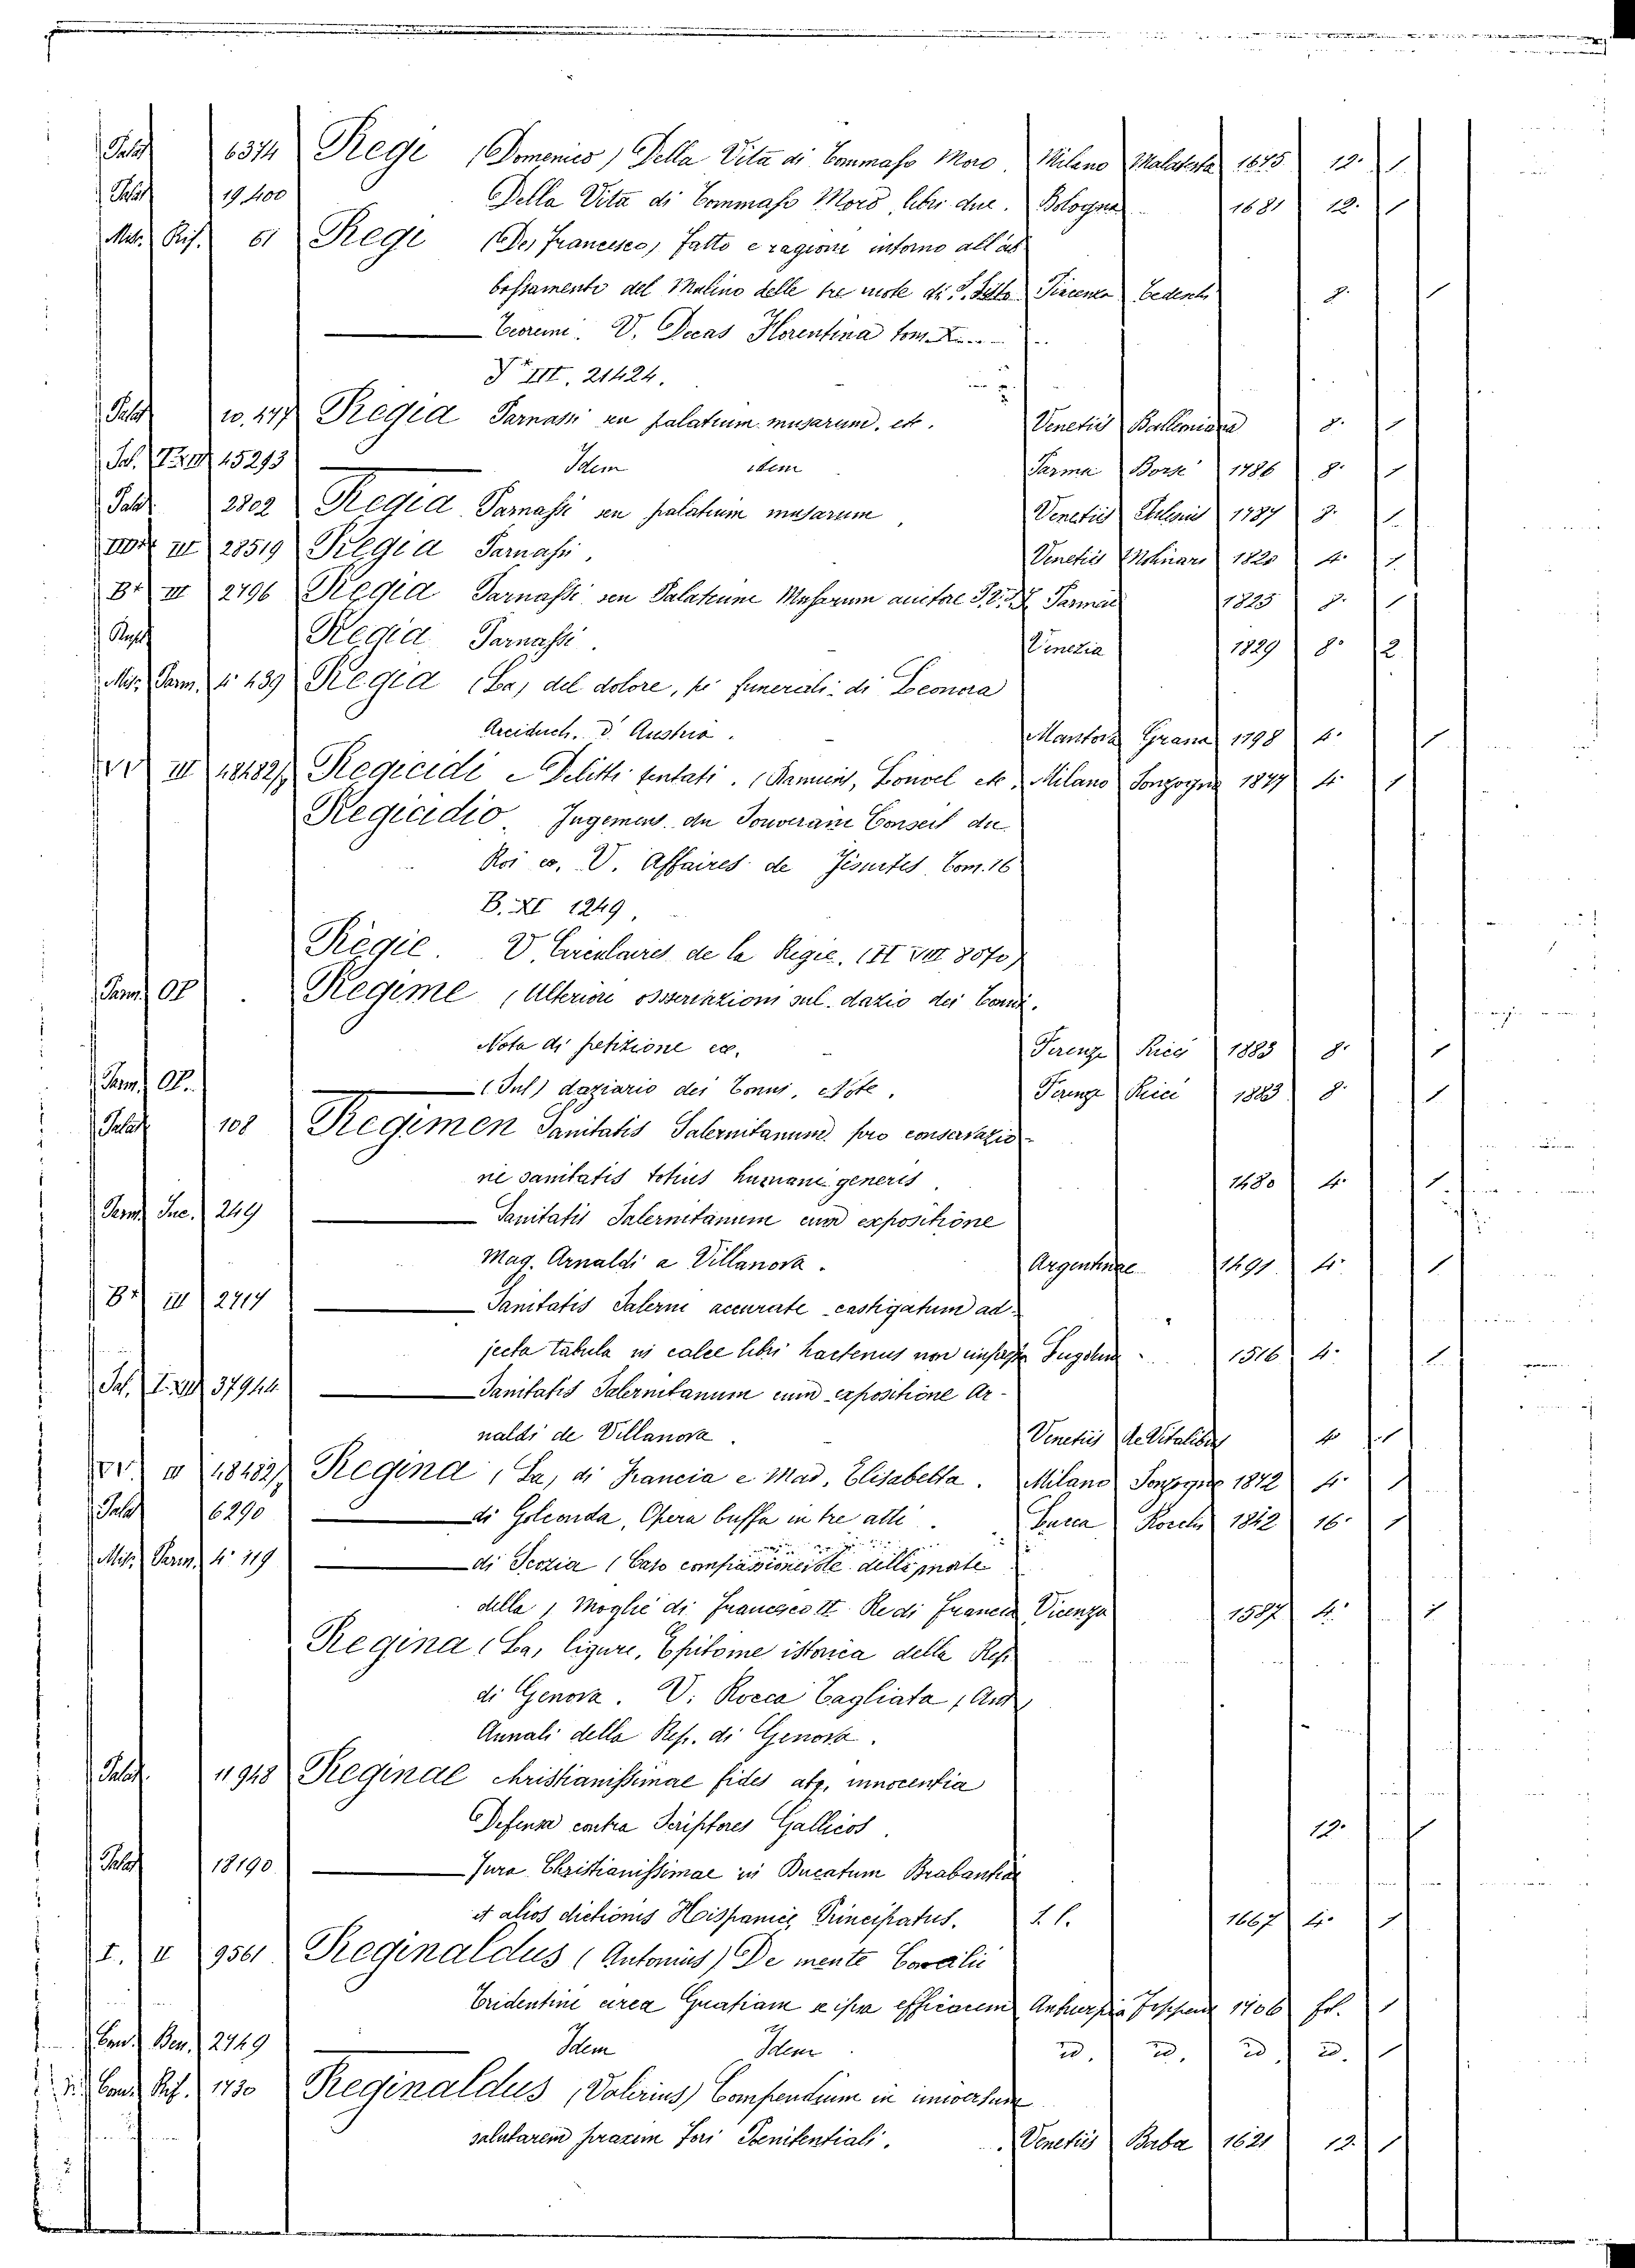 Palat 6374 Rege (Domenico) Della Vita di Tommaso Moro. Milano Malatesta 1675 12. 1
Palat 19,400 Della Vita di Tommaso Moro, libri due. Bologna 1681 12. 1
Misc. Rif. 61 Regi (De, Francesco, fatto e ragioni intorno all'ab
bassamento del Mulino delle tre mole di Piacenza Tedeschi 8. 1
Teoremi. V. Decas Florentina tom.
III. 21424.
Palat 10.477 Regia Parnassi seu palatium musarum. etc. Venetiis Balleoniana 8. 1
15293 Idem idem Parma 1786 8. 1
Palat 2802 Regia Parnassi seu palatium musarum, Venetiis 1787 8. 1
III 28519 Regia Parnassi, Venetiis Molinari 1820 4. 1
B+ III 2796 Regia Parnassi seu Palatium Musarum auctore Parmae 1825 8. 1
Regia Parnassi. Venezia 1829 8. 2
Misc. Parm. 4. 439 Regia (La, del dolore, pei funerali di Leonora
Arciduch. d'Austria. Mantova Grana 1798 4. 1
III 48482/ Regicidi e Delitti tentati. (Damiens, Louvel etc. Milano Sonzogno 1877 4. 1
Regicidio. Jugemens du Souverain Conseil du
Roi ec. V. Affaires de Jesuites, Tom. 16
B. XI 1249,
Régie. V. Circulaires de la Regie. VIII 8070)
Parm. Op. Regime (Ulteriori osservazioni sul dazio dei Comi.
Nota di petizione ec. Firenze Ricci 1883 8. 1
Parm. Op. (Sul) daziario dei Comi, Note. Firenze Ricci 1883 8. 1
Palat 108 Regimen Sanitatis Salernitanum pro conservatio
ne sanitatis totius humani generis. 1480 4. 1
Parm. Inc. 249 Sanitatis Salernitanum cum expositione
Mag. Arnaldi a Villanova. Argentinae 1491. 4. 1
B+ III 2717 Sanitatis Salerni accurate castigatum ad-
jecta tabula in calce libri hactenus non Lugdun 1516 4. 1
37944 Sanitatis Salernitanum cum expositione Ar-
naldi de Villanova. Venetiis de Vitalibus 4. 1
III 48482/ Regina (La, di Francia e Mad. Elisabetta. Milano Sonzogno 1872 4. 1
Palat 6290 di Golconda, Opera buffa in tre atti. Lucca Rocchi 1842 16. 1
Misc. Parm. 4. 119 di Scozia (Caso compassionevole della morte
della, Moglie di Francesco II Re di Francia Vicenza 1587 4. 1
Regina (La, ligure, Epitome istorica della Rep.
di Genova. V. Rocca Tagliata, Ant.
Annali della Rep. di Genova.
Palat. 11948 Reginae christianissimae fides atq. innocentia
Defensa contra Scriptores Gallicos. 12. 1
Palat 18190 Jura Christianissimae in Ducatum Brabantiae
et alios dictionis Hispanicae Principatus. s. l. 1667 4. 1
I. II 9561 Reginaldus (Antonius) De mente Concilii
Tridentini circa Gratiam se ipsa efficacem Antuerpiae Foppens 1706 fol. 1
Ben. 2749 Idem Idem id. id. id. id. 1
Rif. 1730 Reginaldus (Valerius) Compendium in universam
salutarem praxim fori Poenitentiali. Venetiis Baba 1621 12. 1